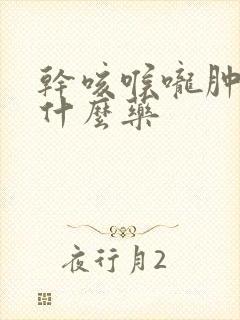 幹咳喉嚨肿
什麼藥
夜行月2